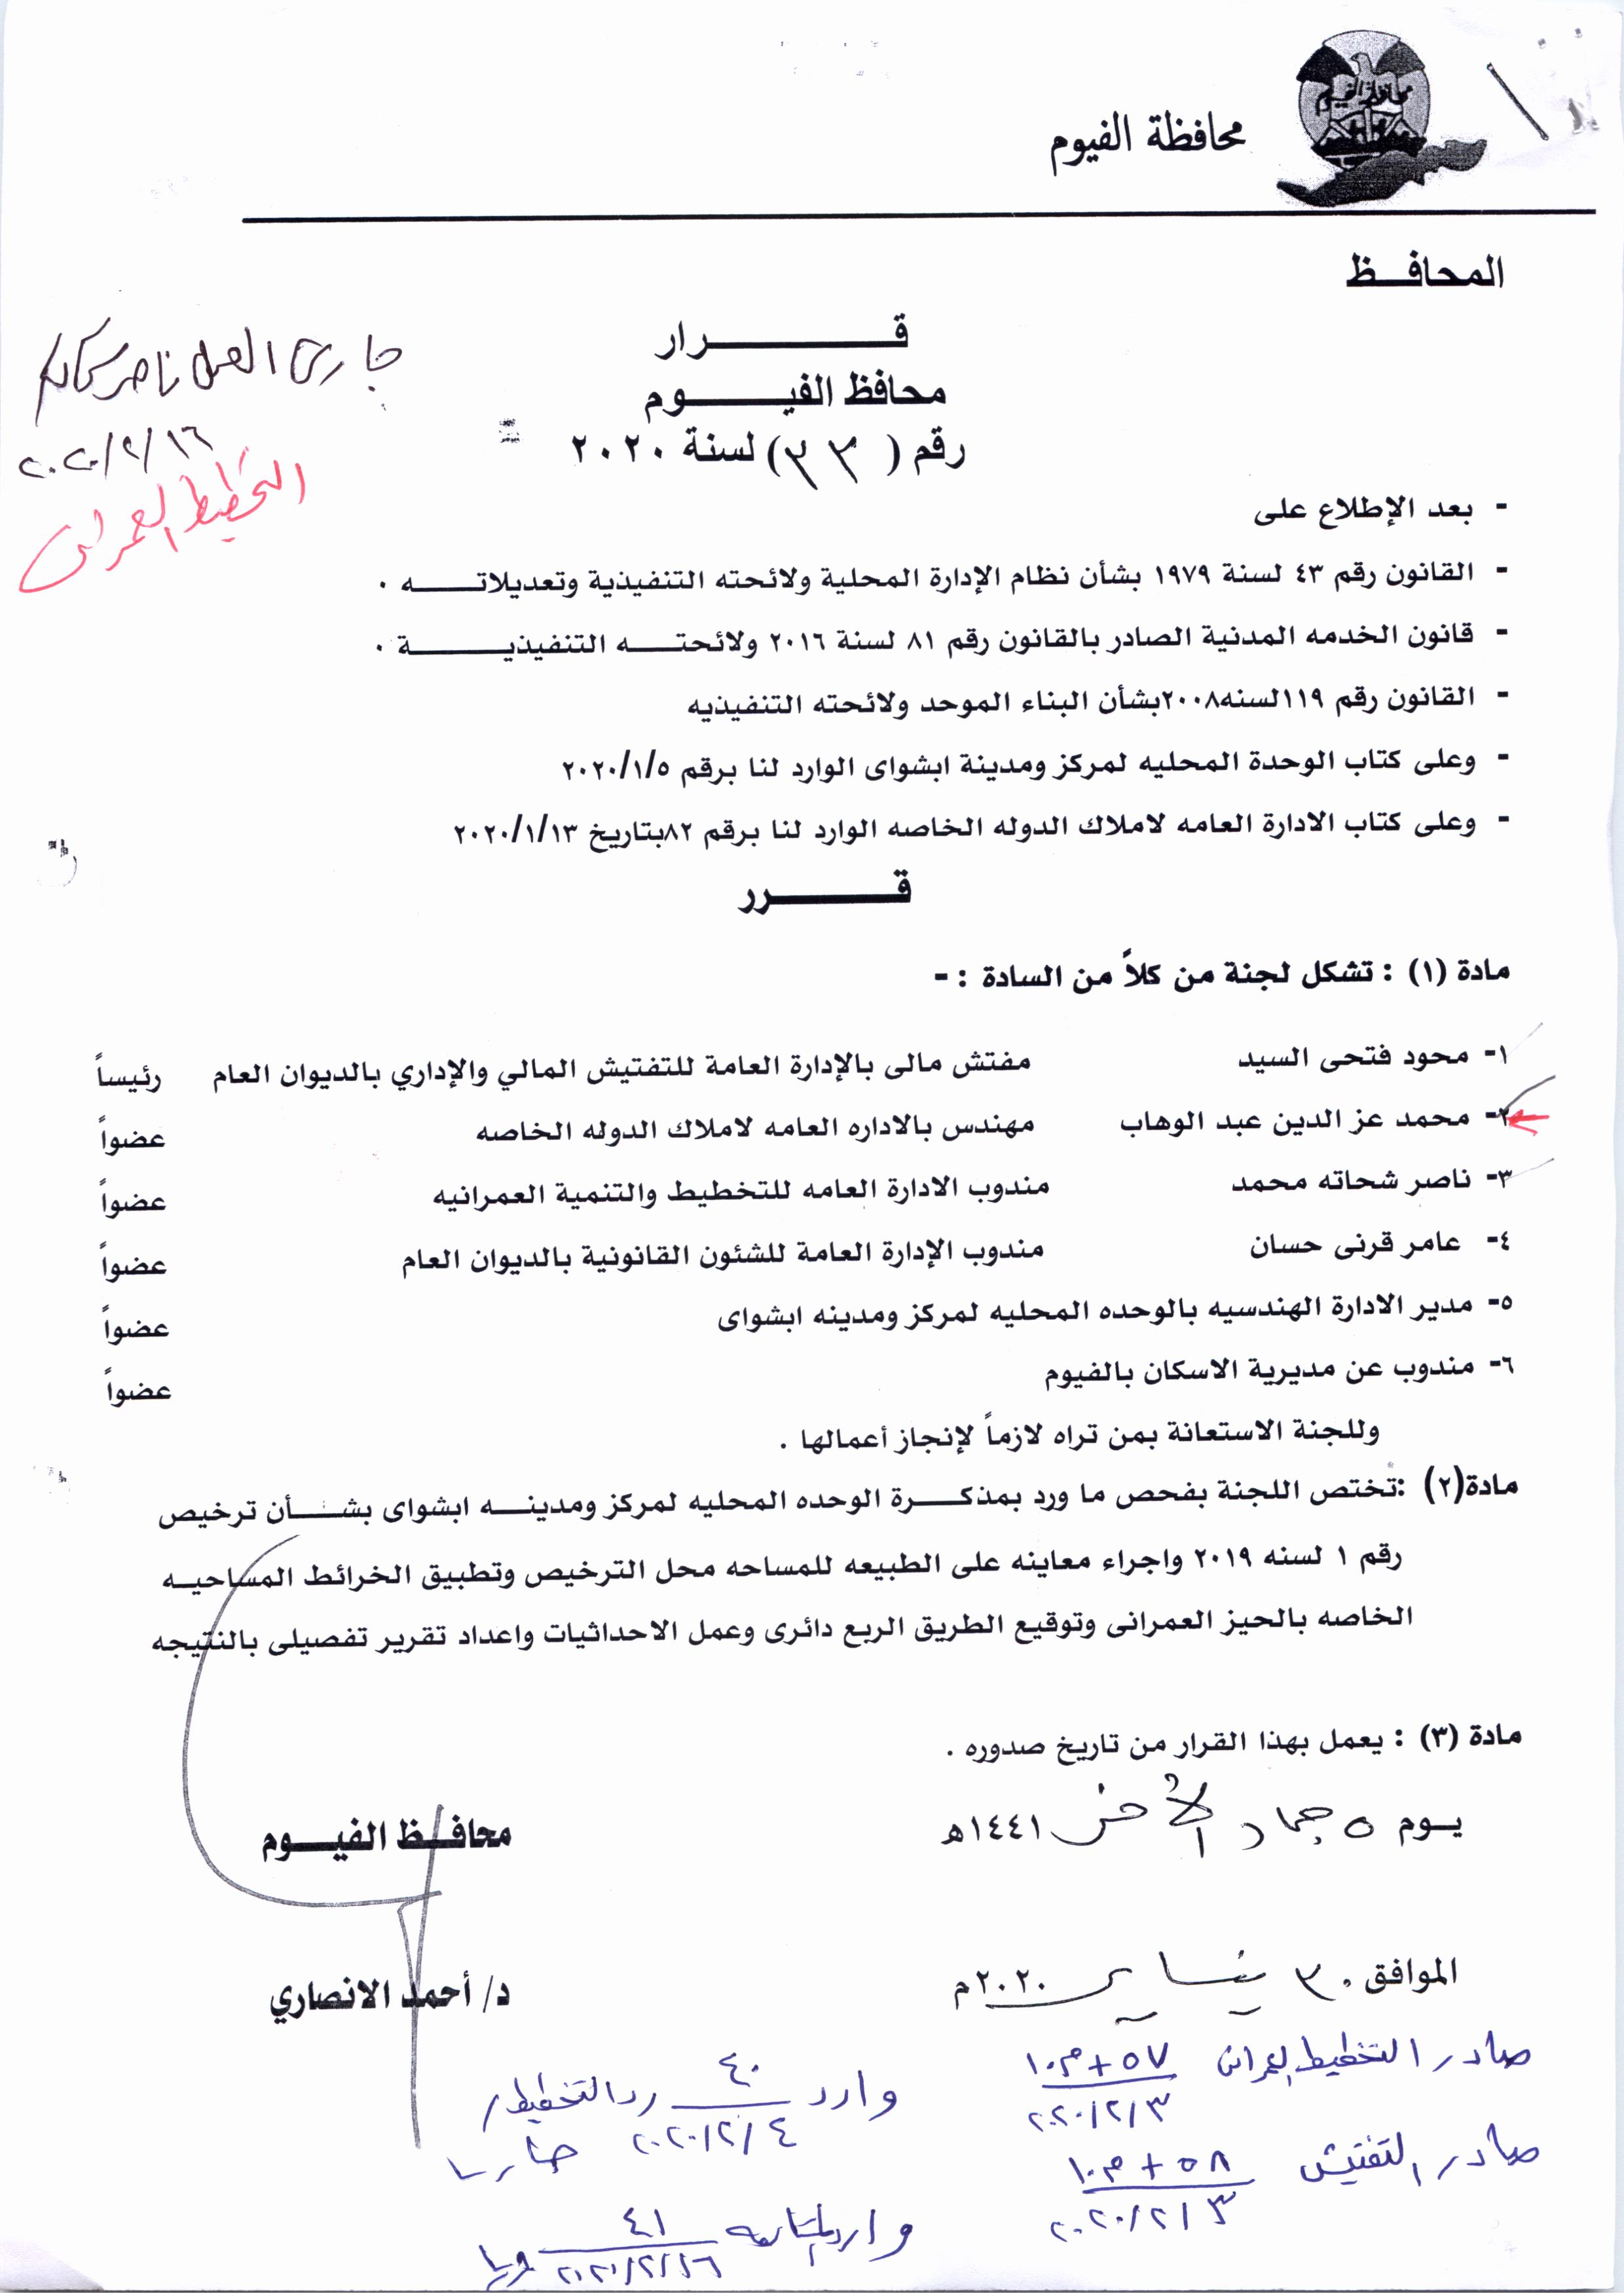 محافظة الفيوم
محافظة الفيوم
المحافظ
قرار
محافظ الفيوم
رقم (٣٣) لسنة ٢٠٢٠
جارى العمل ناصر
٢٠٢٠/٢/١٦
التخطيط العمرانى
- بعد الإطلاع على
- القانون رقم ٤٣ لسنة ١٩٧٩ بشأن نظام الإدارة المحلية ولائحته التنفيذية وتعديلاته .
- قانون الخدمه المدنية الصادر بالقانون رقم ٨١ لسنة ٢٠١٦ ولائحته التنفيذية .
- القانون رقم ١١٩لسنه٢٠٠٨بشأن البناء الموحد ولائحته التنفيذيه
- وعلى كتاب الوحدة المحليه لمركز ومدينة ابشواى الوارد لنا برقم ٢٠٢٠/١/٥
- وعلى كتاب الادارة العامه لاملاك الدوله الخاصه الوارد لنا برقم ٨٢بتاريخ ٢٠٢٠/١/١٣
قرر
مادة (١) : تشكل لجنة من كلاً من السادة :-
١- محود فتحى السيد مفتش مالى بالإدارة العامة للتفتيش المالي والإداري بالديوان العام رئيساً
٢- محمد عز الدين عبد الوهاب مهندس بالاداره العامه لاملاك الدوله الخاصه عضواً
٣- ناصر شحاته محمد مندوب الادارة العامه للتخطيط والتنمية العمرانيه عضواً
٤- عامر قرنى حسان مندوب الإدارة العامة للشئون القانونية بالديوان العام عضواً
٥- مدير الادارة الهندسيه بالوحده المحليه لمركز ومدينه ابشواى عضواً
٦- مندوب عن مديرية الاسكان بالفيوم عضواً
وللجنة الاستعانة بمن تراه لازماً لإنجاز أعمالها .
مادة(٢) :تختص اللجنة بفحص ما ورد بمذكرة الوحده المحليه لمركز ومدينه ابشواى بشأن ترخيص
رقم ١ لسنه ٢٠١٩ واجراء معاينه على الطبيعه للمساحه محل الترخيص وتطبيق الخرائط المساحيه
الخاصه بالحيز العمرانى وتوقيع الطريق الربع دائرى وعمل الاحداثيات واعداد تقرير تفصيلى بالنتيجه
مادة (٣) : يعمل بهذا القرار من تاريخ صدوره .
يوم ٥ جماد الآخر ١٤٤١هـ
محافظ الفيوم
الموافق ٣٠ يناير ٢٠٢٠م
د/ أحمد الانصاري
صادر التخطيط العمرانى ٥٧ + ١٠٣
٢٠٢٠/٢/٣
وارد ٤٠ رد التخطيط
٢٠٢٠/٢/٤
صادر التفتيش ٥٨ + ١٠٣
٢٠٢٠/٢/٣
وارد ٤١
٢٠٢٠/٢/١٦